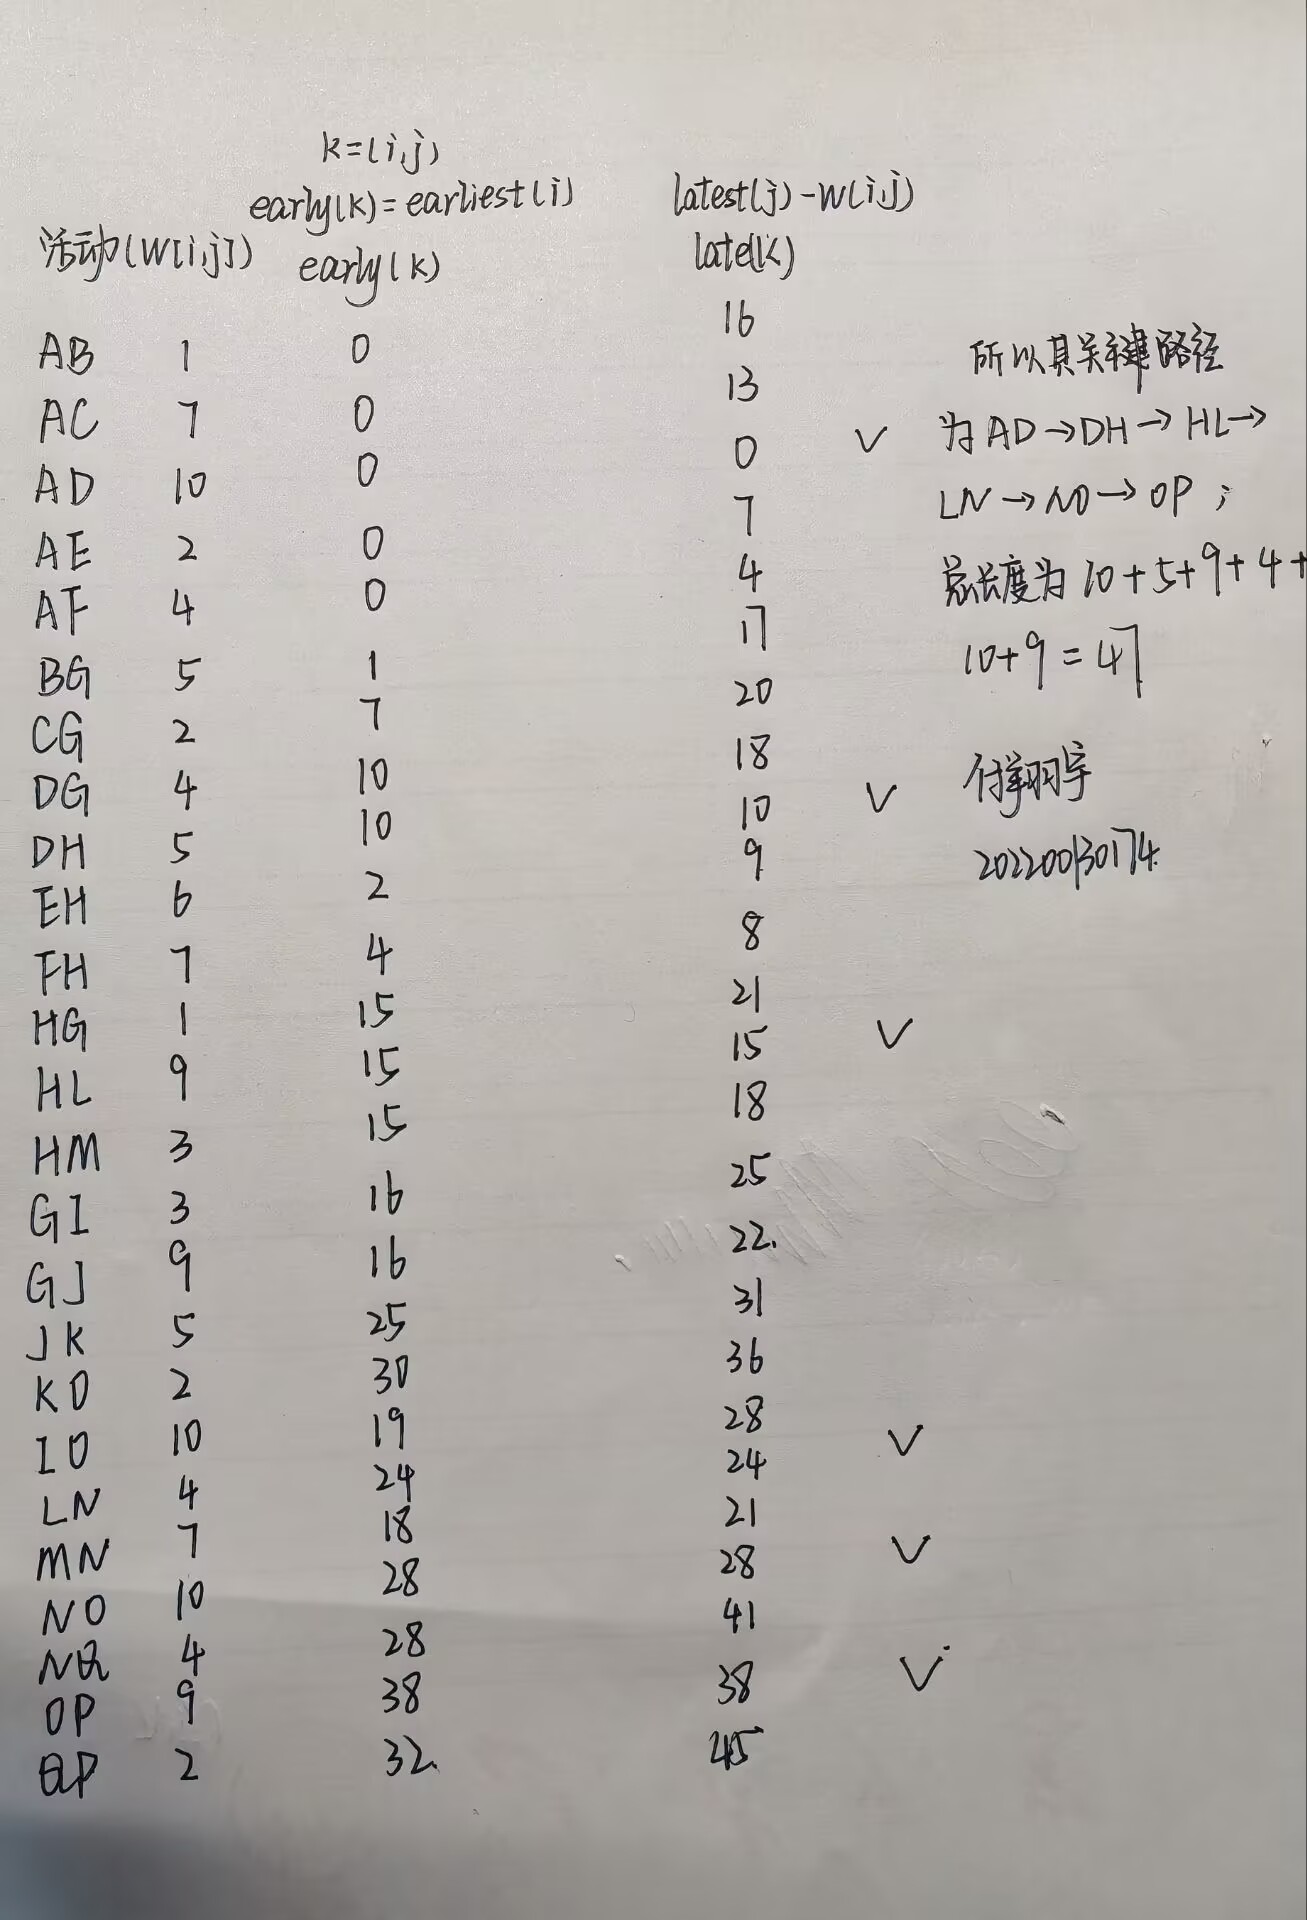 k=(i,j)
early(k)=earliest(i)
latest(j)-W(i,j)
活动(W[i,j])
early(k)
late(k)
AB 1 0 16
AC 7 0 13
AD 10 0 0 V
AE 2 0 7
AF 4 0 4
BG 5 1 17
CG 2 7 20
DG 4 10 18
DH 5 10 10 V
EH 6 2 9
FH 7 4 8
HG 1 15 21
HL 9 15 15 V
HM 3 15 18
GI 3 16 25
GJ 9 16 22.
JK 5 25 31
KO 2 30 36
IO 10 19 28
LN 4 24 24 V
MN 7 18 21
NO 10 28 28 V
NQ 4 28 41
OP 9 38 38 V
QP 2 32. 45
所以其关键路径
为AD→DH→HL→
LN→NO→OP;
总长度为10+5+9+4+
10+9=47
付翔宇
202200130174